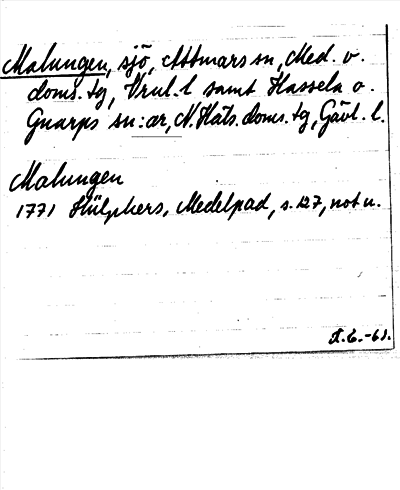 Malungen, sjö, Attmars sn, Med. v.
doms. tg, Vnl. l samt Hassela o.
Gnarps sn:ar, N. Häls. doms. tg, Gävl. l.
Malungen
1771 Hülphers, Medelpad, s. 127, not u.